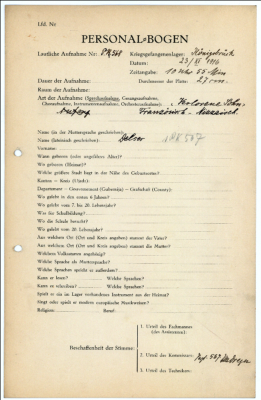 Lfd. Nr.
PERSONAL-BOGEN
Lautliche Aufnahme Nr.: PK 568 Kriegsgefangenenlager: Königsbrück
Datum: 23/XI 1916
Zeitangabe: 10 Uhr 55 Min
Dauer der Aufnahme: Durchmesser der Platte: 27 cm
Raum der Aufnahme:
Art der Aufnahme (Sprechaufnahme, Gesangsaufnahme,
Choraufnahme, Instrumentenaufnahme, Orchesteraufnahme):
Französisch
Name (in der Muttersprache geschrieben):
Name (lateinisch geschrieben): PK 567
Vorname:
Wann geboren (oder ungefähres Alter)?
Wo geboren (Heimat)?
Welche größere Stadt liegt in der Nähe des Geburtsortes?
Kanton — Kreis (Ujedz):
Departement — Gouvernement (Gubernija) — Grafschaft (County):
Wo gelebt in den ersten 6 Jahren?
Wo gelebt vom 7. bis 20. Lebensjahr?
Was für Schulbildung?
Wo die Schule besucht?
Wo gelebt vom 20. Lebensjahr?
Aus welchem Ort (Ort und Kreis angeben) stammt der Vater?
Aus welchem Ort (Ort und Kreis angeben) stammt die Mutter?
Welchem Volksstamm angehörig?
Welche Sprache als Muttersprache?
Welche Sprachen spricht er außerdem?
Kann er lesen? Welche Sprachen?
Kann er schreiben? Welche Sprachen?
Spielt er ein im Lager vorhandenes Instrument aus der Heimat?
Singt oder spielt er modern europäische Musikweisen?
Religion: Beruf:
1. Urteil des Fachmannes
(des Assistenten):
Beschaffenheit der Stimme:
2. Urteil des Kommissars: 567
3. Urteil des Technikers: